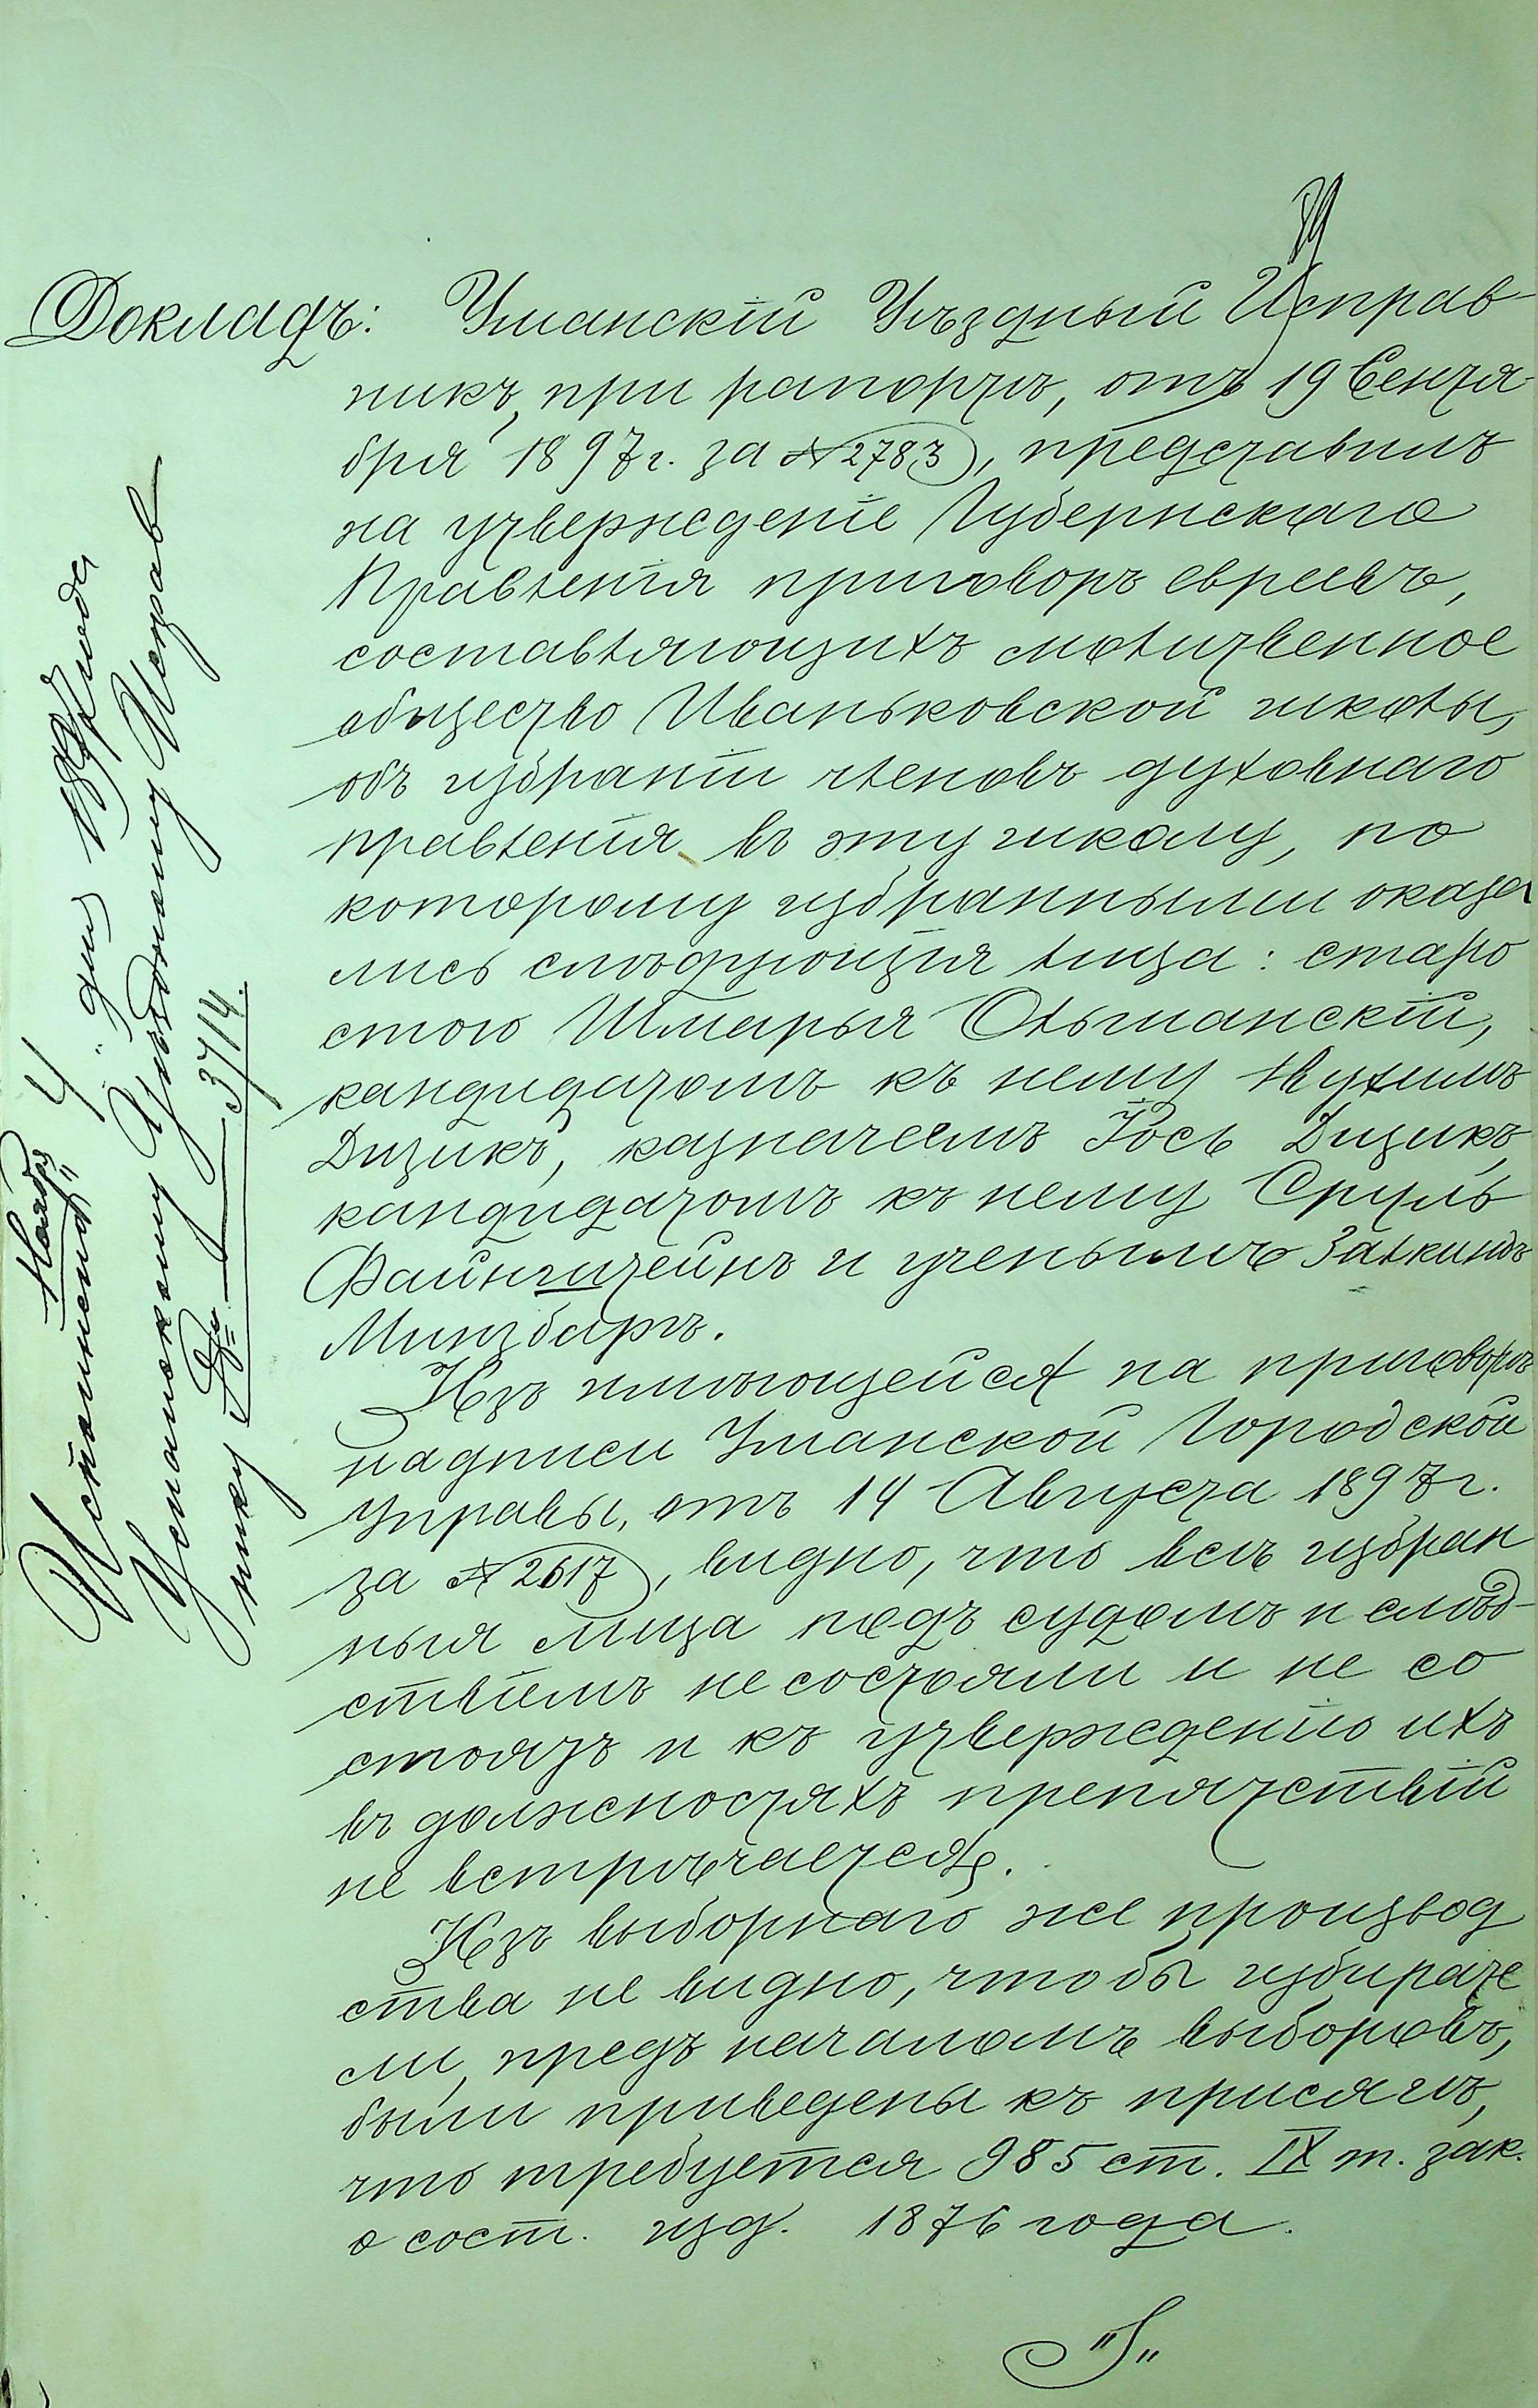 Докладъ: Уманскій Уѣздный Исправ-
никъ, при рапортѣ, отъ 19 Сентя-
бря 1897 г. за № 2783, представилъ
на утвержденіе Губернскаго
Правленія приговоръ евреевъ,
составляющихъ молитвенное
общество Иваньковской школы,
объ избраніи членовъ духовнаго
правленія въ эту школу, по
которому избранными оказа
лись слѣдующія лица: старо
стою Шмарья Ольшанскій,
кандидатомъ къ нему Нухимъ
Дизикъ, казначеемъ Іось Дизикъ,
кандидатомъ къ нему Сруль
Файнштейнъ и ученымъ Залкиндъ
Минцбаргъ.
Изъ имѣющейся на приговорѣ
надписи Уманской Городской
Управы, отъ 14 Августа 1897 г.
за № 2617, видно, что всѣ избран
ныя лица подъ судомъ и слѣд-
ствіемъ не состояли и не со
стоятъ и къ утвержденію ихъ
въ должностяхъ препятствій
не встрѣчается.
Изъ выборнаго же производ
ства не видно, чтобы избирате
ли, предъ началомъ выборовъ,
были приведены къ присягѣ,
что требуется 985 ст. IX т. зак.
о сост. изд. 1876 года.
Исполнено Ноября 4 дня 1897 года
Уманскому Уѣздному Исправ
нику № 3714.